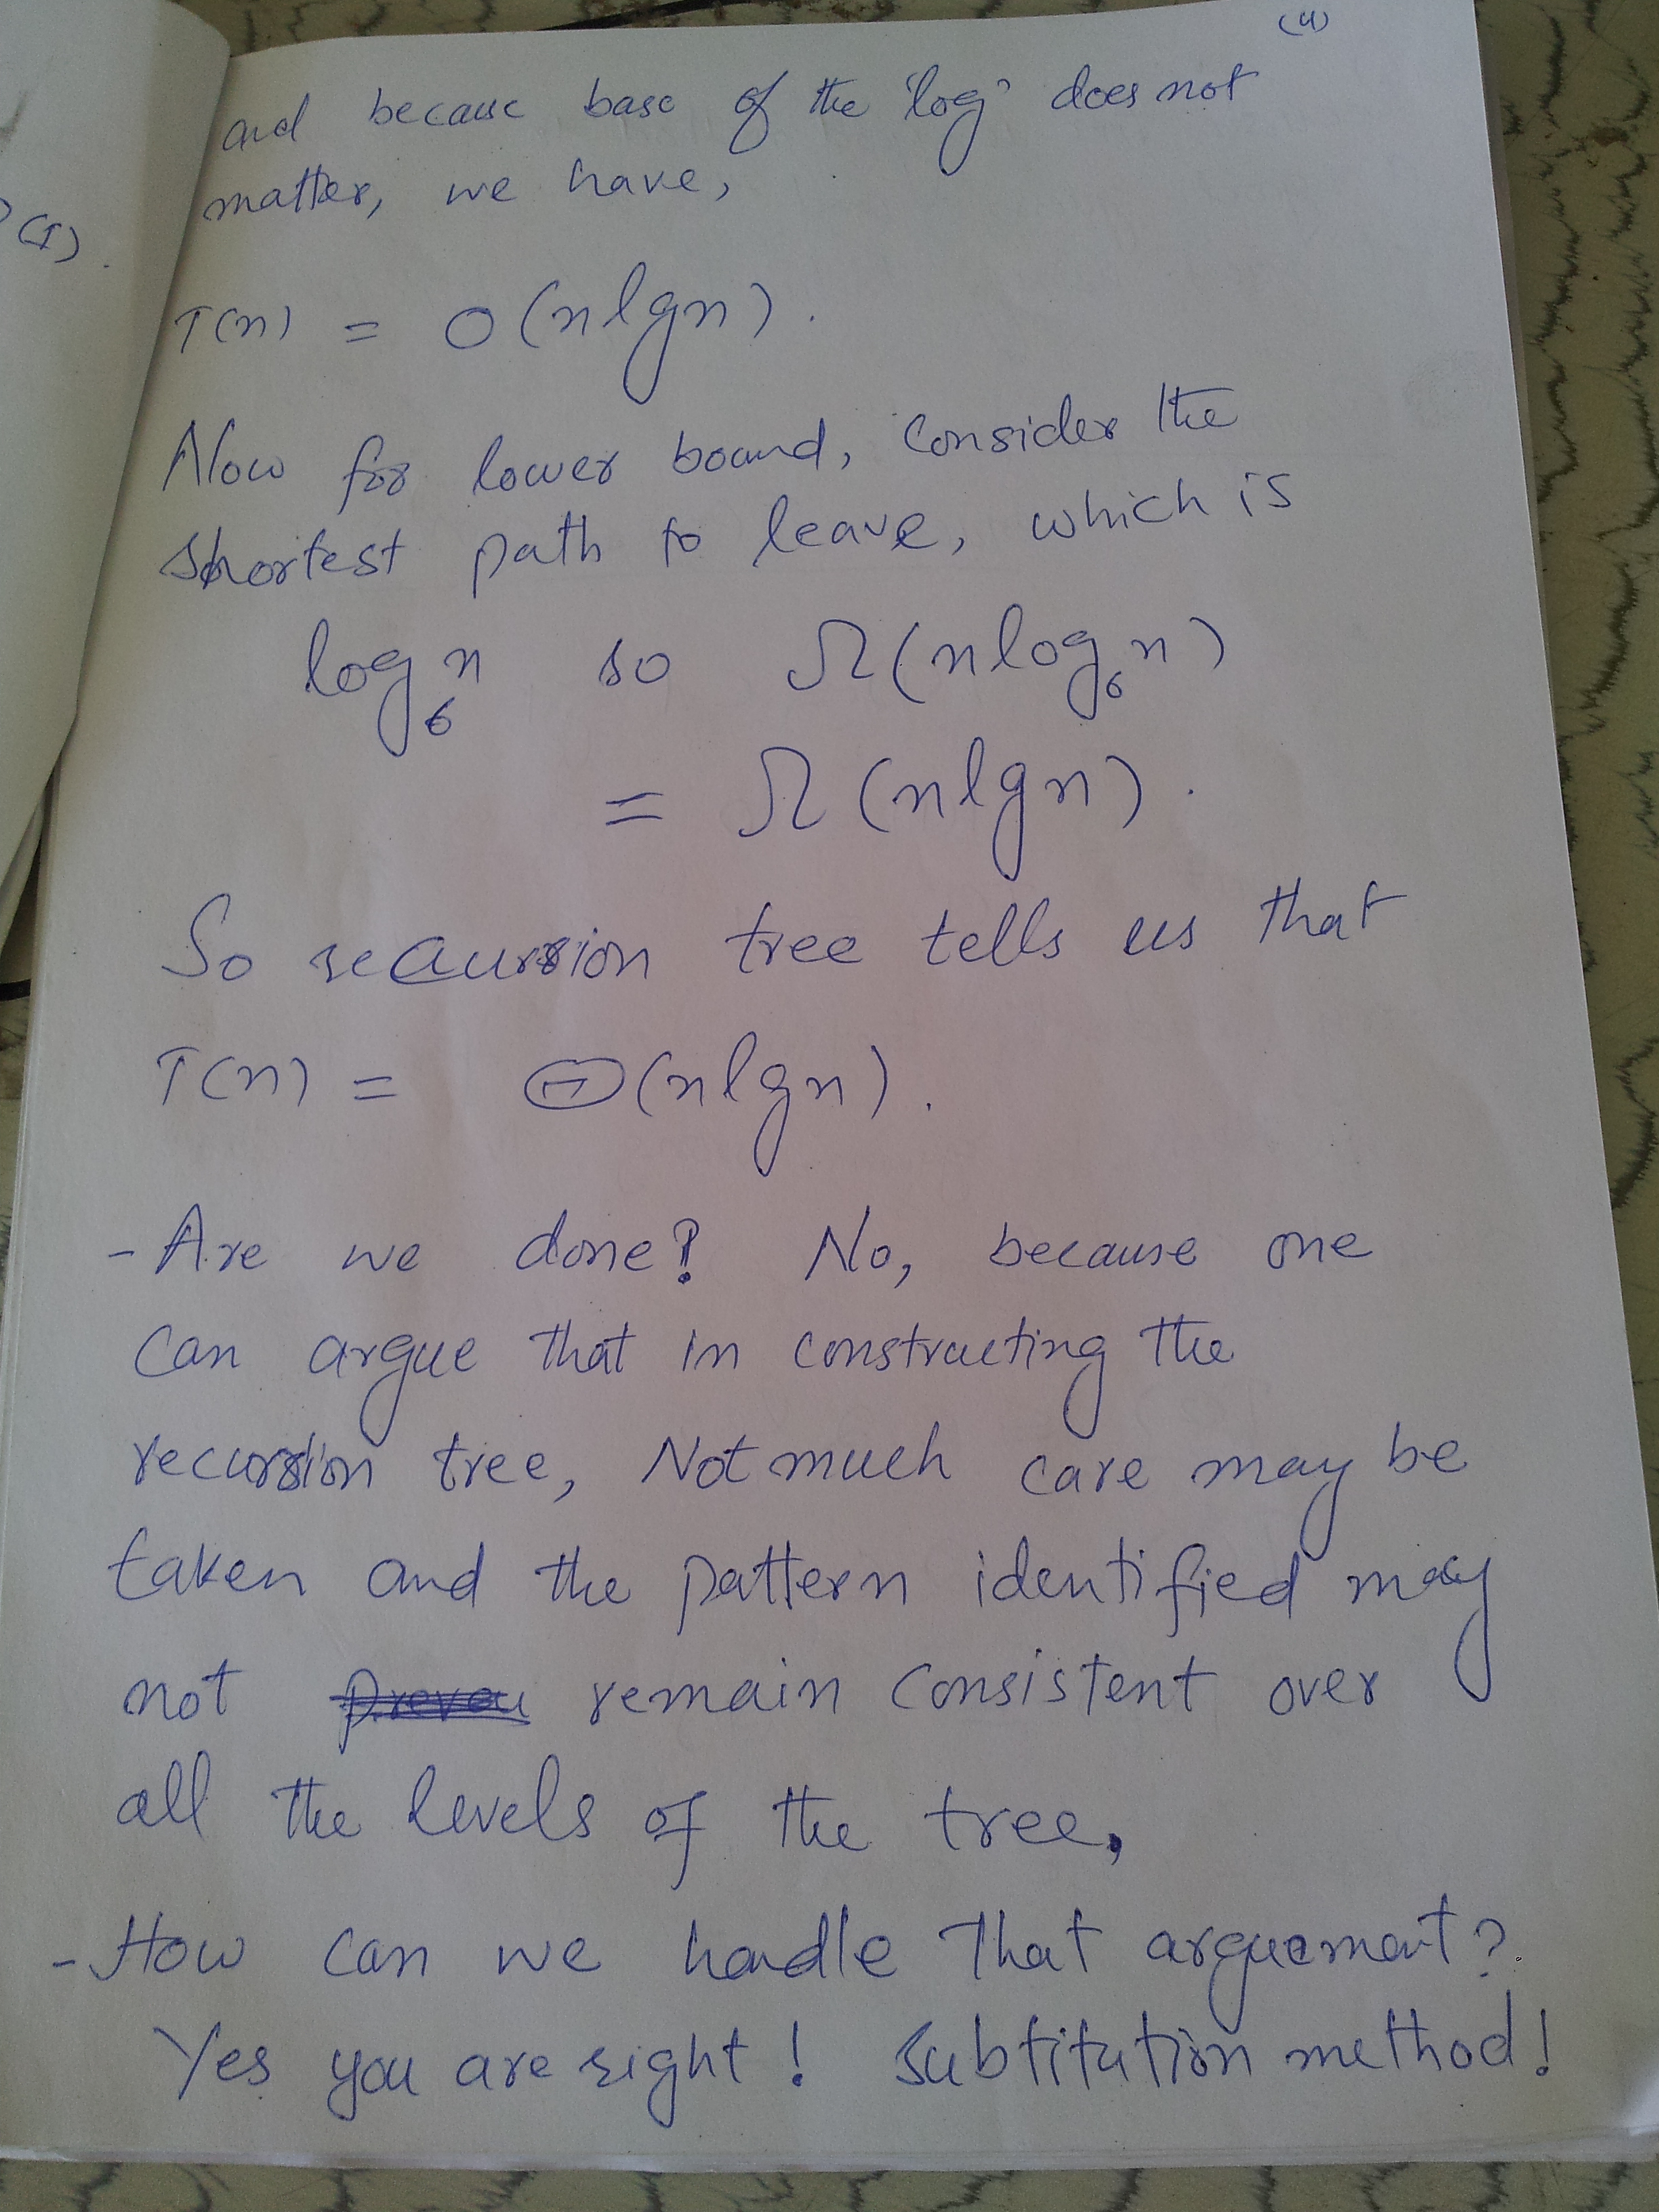 (4)
and because base of the 'log' does not
matter, we have,
T(n) = O(n lg n).
Now for lower bound, consider the
shortest path to leave, which is
log₆n so Ω(n log₆n)
= Ω(n lg n).
So recursion tree tells us that
T(n) = Θ(n lg n).
- Are we done? No, because one
can argue that in constructing the
recursion tree, Not much care may be
taken and the pattern identified may
not remain consistent over
all the levels of the tree,
- How can we handle that arguement?
Yes you are right! Substitution method!